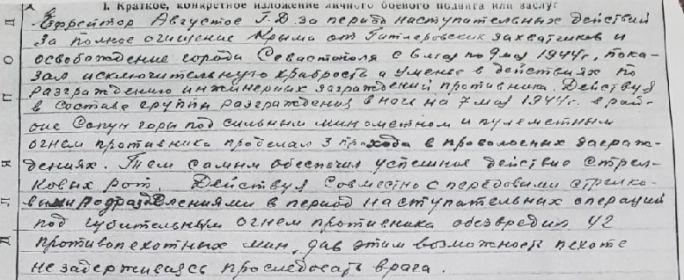 I. Краткое, конкретное изложение личного боевого подвига или заслуг
Ефрейтор Августов Г.Д. за период наступательных действий
за полное очищение Крыма от гитлеровских захватчиков и
освобождение города Севастополя с 6 мая по 9 мая 1944г. пока-
зал исключительную храбрость и уменье в действиях по
разграждению инженерных заграждений противника. Действуя
в составе группы разграждения в ночь на 7 мая 1944г. в рай-
оне Сапун горы под сильным минометным и пулеметным
огнем противника проделал 3 прохода в проволочных заграж-
дениях. Тем самым обеспечил успешное действие стрел-
ковых рот. Действуя совместно с передовыми стрелко-
выми подразделениями в период наступательных операций
под губительным огнем противника обезвредил 42
противопехотных мин, дав этим возможность пехоте
не задерживаясь преследовать врага.
Д
Л
Я
П
О
Д